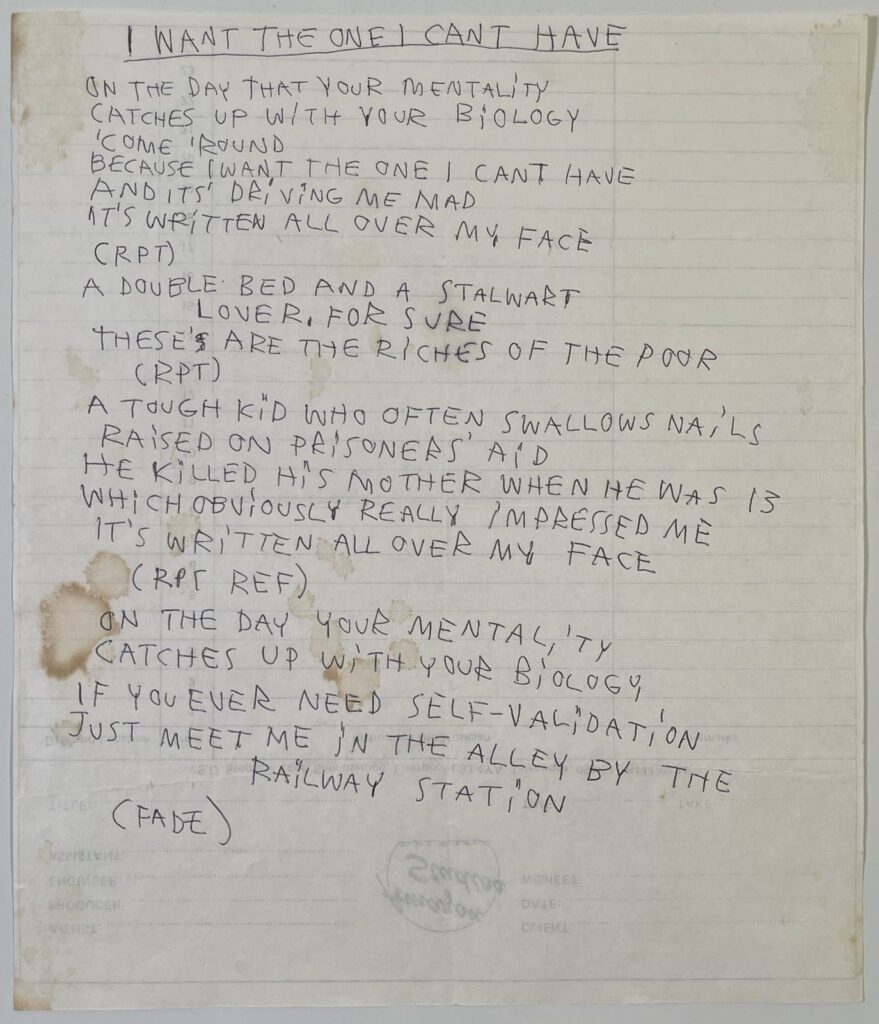 I WANT THE ONE I CANT HAVE
ON THE DAY THAT YOUR MENTALITY
CATCHES UP WITH YOUR BIOLOGY
'COME 'ROUND
BECAUSE I WANT THE ONE I CANT HAVE
AND ITS' DRIVING ME MAD
IT'S WRITTEN ALL OVER MY FACE
(RPT)
A DOUBLE BED AND A STALWART
LOVER, FOR SURE
THESE'S ARE THE RICHES OF THE POOR
(RPT)
A TOUGH KID WHO OFTEN SWALLOWS NAILS
RAISED ON PRISONERS' AID
HE KILLED HIS MOTHER WHEN HE WAS 13
WHICH OBVIOUSLY REALLY IMPRESSED ME
IT'S WRITTEN ALL OVER MY FACE
(RPT REF)
ON THE DAY YOUR MENTALITY
CATCHES UP WITH YOUR BIOLOGY
IF YOU EVER NEED SELF-VALIDATION
JUST MEET ME IN THE ALLEY BY THE
RAILWAY STATION
(FADE)
TITLE:
TAKE
ASSISTANT
ENGINEER
W/SHEET
PRODUCER
DATE
ARTIST
CLIENT
Amazon
Studios